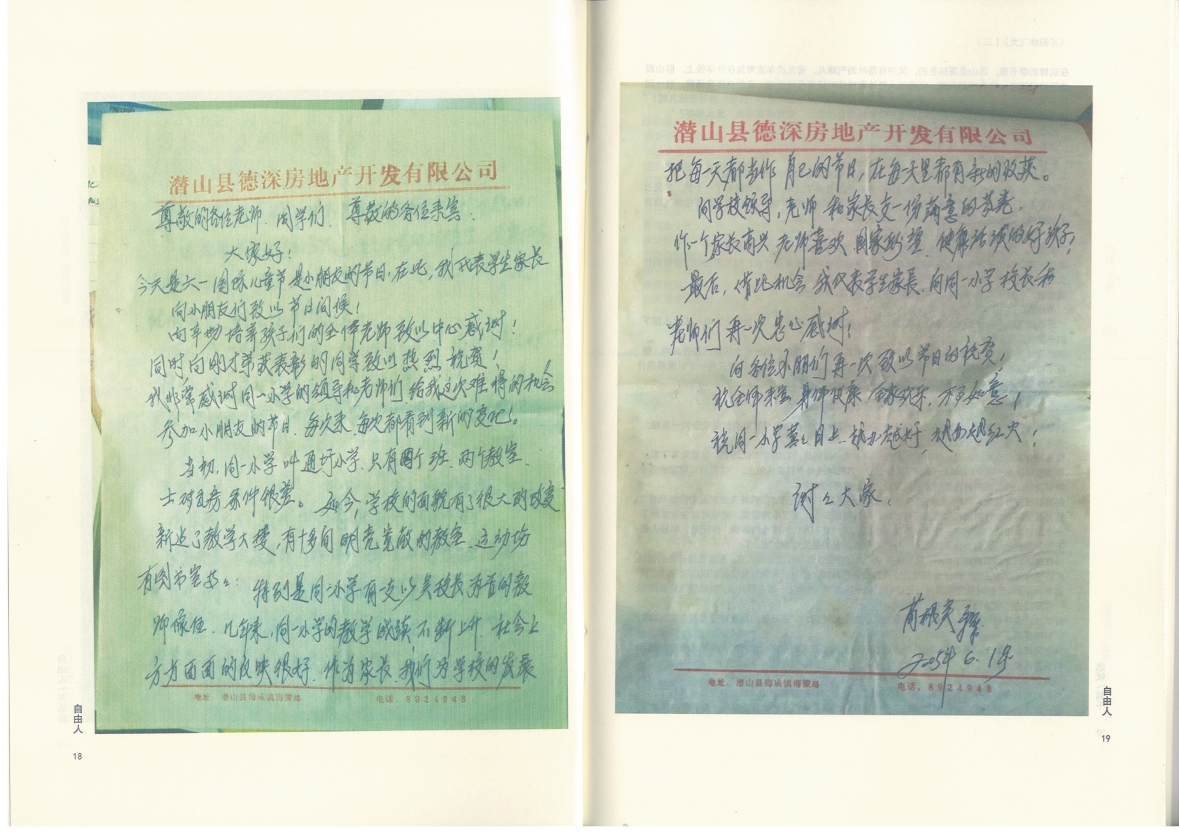 潜山县德深房地产开发有限公司
尊敬的各位老师、同学们、尊敬的各位来宾:
大家好!
今天是六一国际儿童节是小朋友的节日,在此,我代表学生家长
向小朋友们致以节日问候!
向辛勤培养孩子们的全体老师致以中心感谢!
同时向刚才荣获表彰的同学致以热烈祝贺!
我非常感谢同一小学的领导和老师们给我这次难得的机会
参加小朋友的节日,每次来,每次都看到新的变化。
当初,同一小学叫通圩小学,只有两个班、两个教室,
土砖瓦房条件很差。如今,学校的面貌有了很大的改变
新造了教学大楼,有十多间明亮宽敞的教室、运动场
有图书室等等;
特别是同一小学有支以吴校长为首的教
师队伍,几年来,同一小学的教学成绩不断上升,社会上
方方面面的反映很好。作为家长,我们为学校的发展
地址:潜山县梅城镇梅黄路
电话:8924948
自由人
18
潜山县德深房地产开发有限公司
把每一天都当作自己的节日,在每天里都有新的收获。
向学校领导,老师和家长交一份满意的答卷。
作一个家长高兴 老师喜欢 国家盼望 健康活泼的好孩子!
最后,借此机会 我代表学生家长,向同一小学校长和
老师们再一次忠心感谢!
向各位小朋们再一次致以节日的祝贺!
祝全体来宾 身体健康 全家欢乐,万事如意!
祝同一小学蒸蒸日上、越办越好,越办越红火!
谢谢大家。
2005年6.1号
地址:潜山县梅城镇梅黄路
电话:8924948
自由人
19